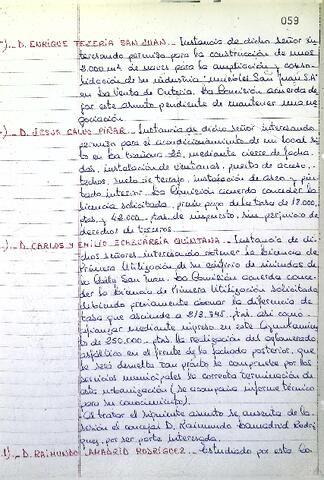 059
-).- D. ENRIQUE TEJERÍA SAN JUAN.- Instancia de dicho señor in-
teresando permiso para la construcción de unos
2.000 m² de naves para la ampliación y conso-
lidación de su industria "Muebles San Juan S.A."
en la Venta de Ontoria. La Comisión acuerda de-
jar este asunto pendiente de mantener una ne-
gociación.
-).- D. JESUS CALVO PIÑAR.- Instancia de dicho señor interesando
permiso para el acondicionamiento de un local si-
to en La 25, mediante cierre de facha-
das, instalación de ventanas, puerta de acceso,
techos, suelo de terrazo, instalación de aseo y pin-
tado interior. La Comisión acuerda conceder la
licencia solicitada, previo pago de la tasa de 18.000
ptas. y 42.000.- ptas. de impuesto, sin perjuicio de
derechos de terceros.
-).- D. CARLOS Y EMILIO ECHEVARRIA QUINTANA.- Instancia de di-
chos señores interesando obtener la licencia de
Primera Utilización de su edificio de viviendas de
la Calle San Juan. La Comisión acuerda conce-
der la licencia de Primera Utilización solicitada
debiendo previamente abonar la diferencia de
tasa que asciende a 213.545.- ptas. así como
afianzar mediante ingreso en este Ayuntamien-
to de 250.000.- ptas. la realización del aglomerado
asfáltico en el frente de la fachada posterior, que
le será devuelta tan pronto se compruebe por los
servicios municipales la correcta terminación de
esta urbanización (se acompaña informe técnico
para su conocimiento).
Al tratar el siguiente asunto se ausenta de la
sesión el concejal D. Raimundo Lamadrid Rodrí-
guez, por ser parte interesada.
).- D. RAIMUNDO LAMADRID RODRÍGUEZ.- Estudiado por esta Co-